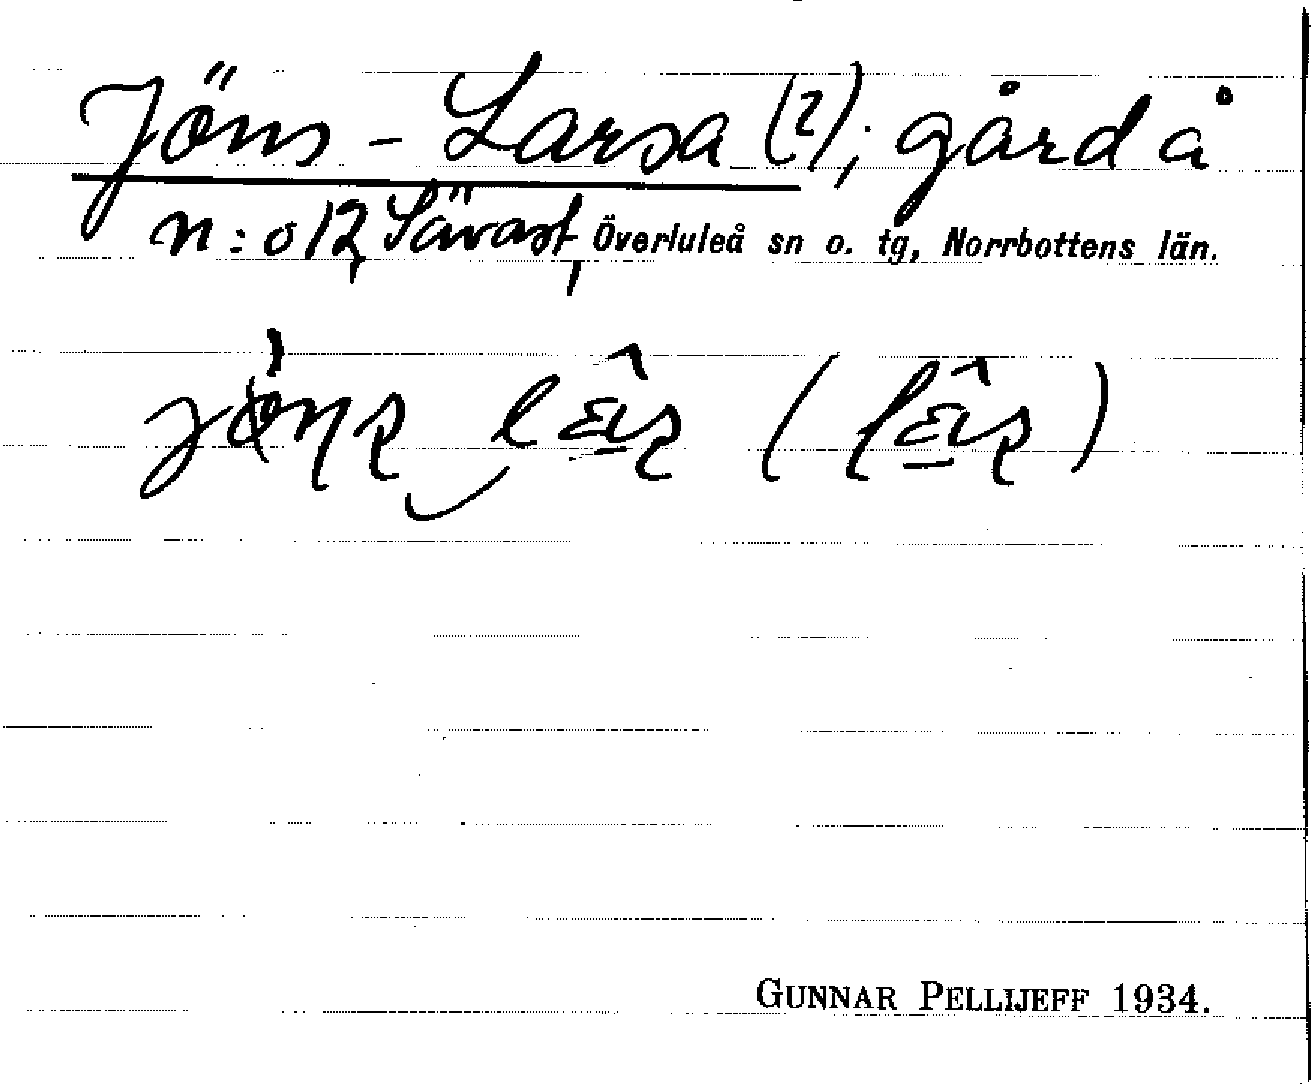 Jöns-Larsa (?); gård å
n:o 12, Sävast, Överluleå sn o. tg, Norrbottens län.
GUNNAR PELLIJEFF 1934.